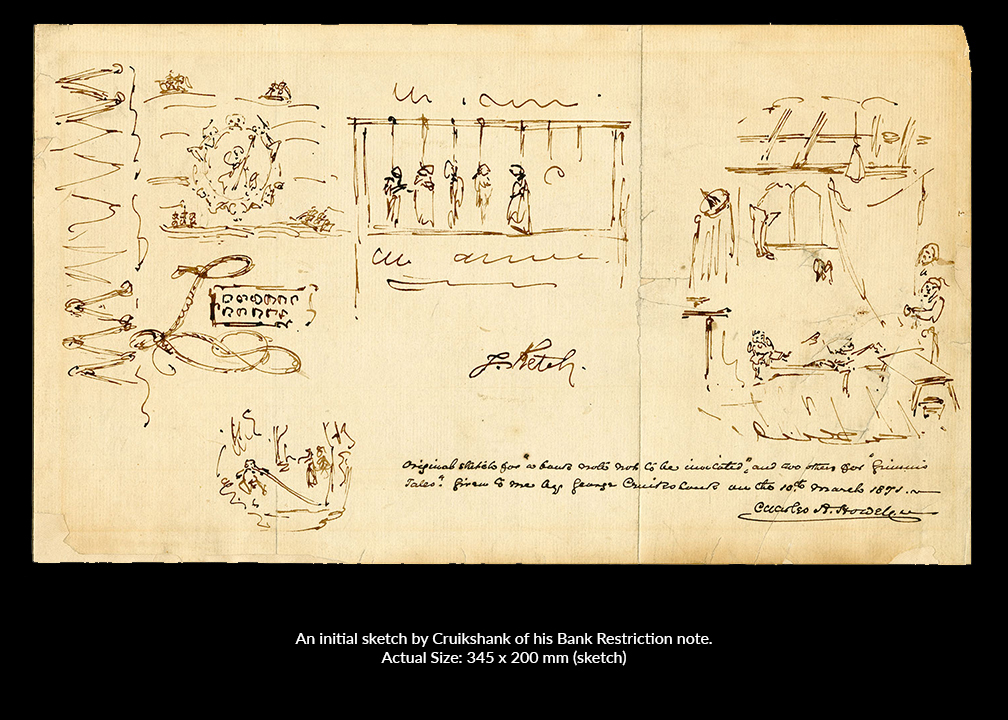 J. Ketch.
Original sketch for "a bank note not to be imitated", and two others for "Grimm's
Tales". Given to me by George Cruikshank on the 10th March 1871.
Charles A. Howell
An initial sketch by Cruikshank of his Bank Restriction note.
Actual Size: 345 x 200 mm (sketch)